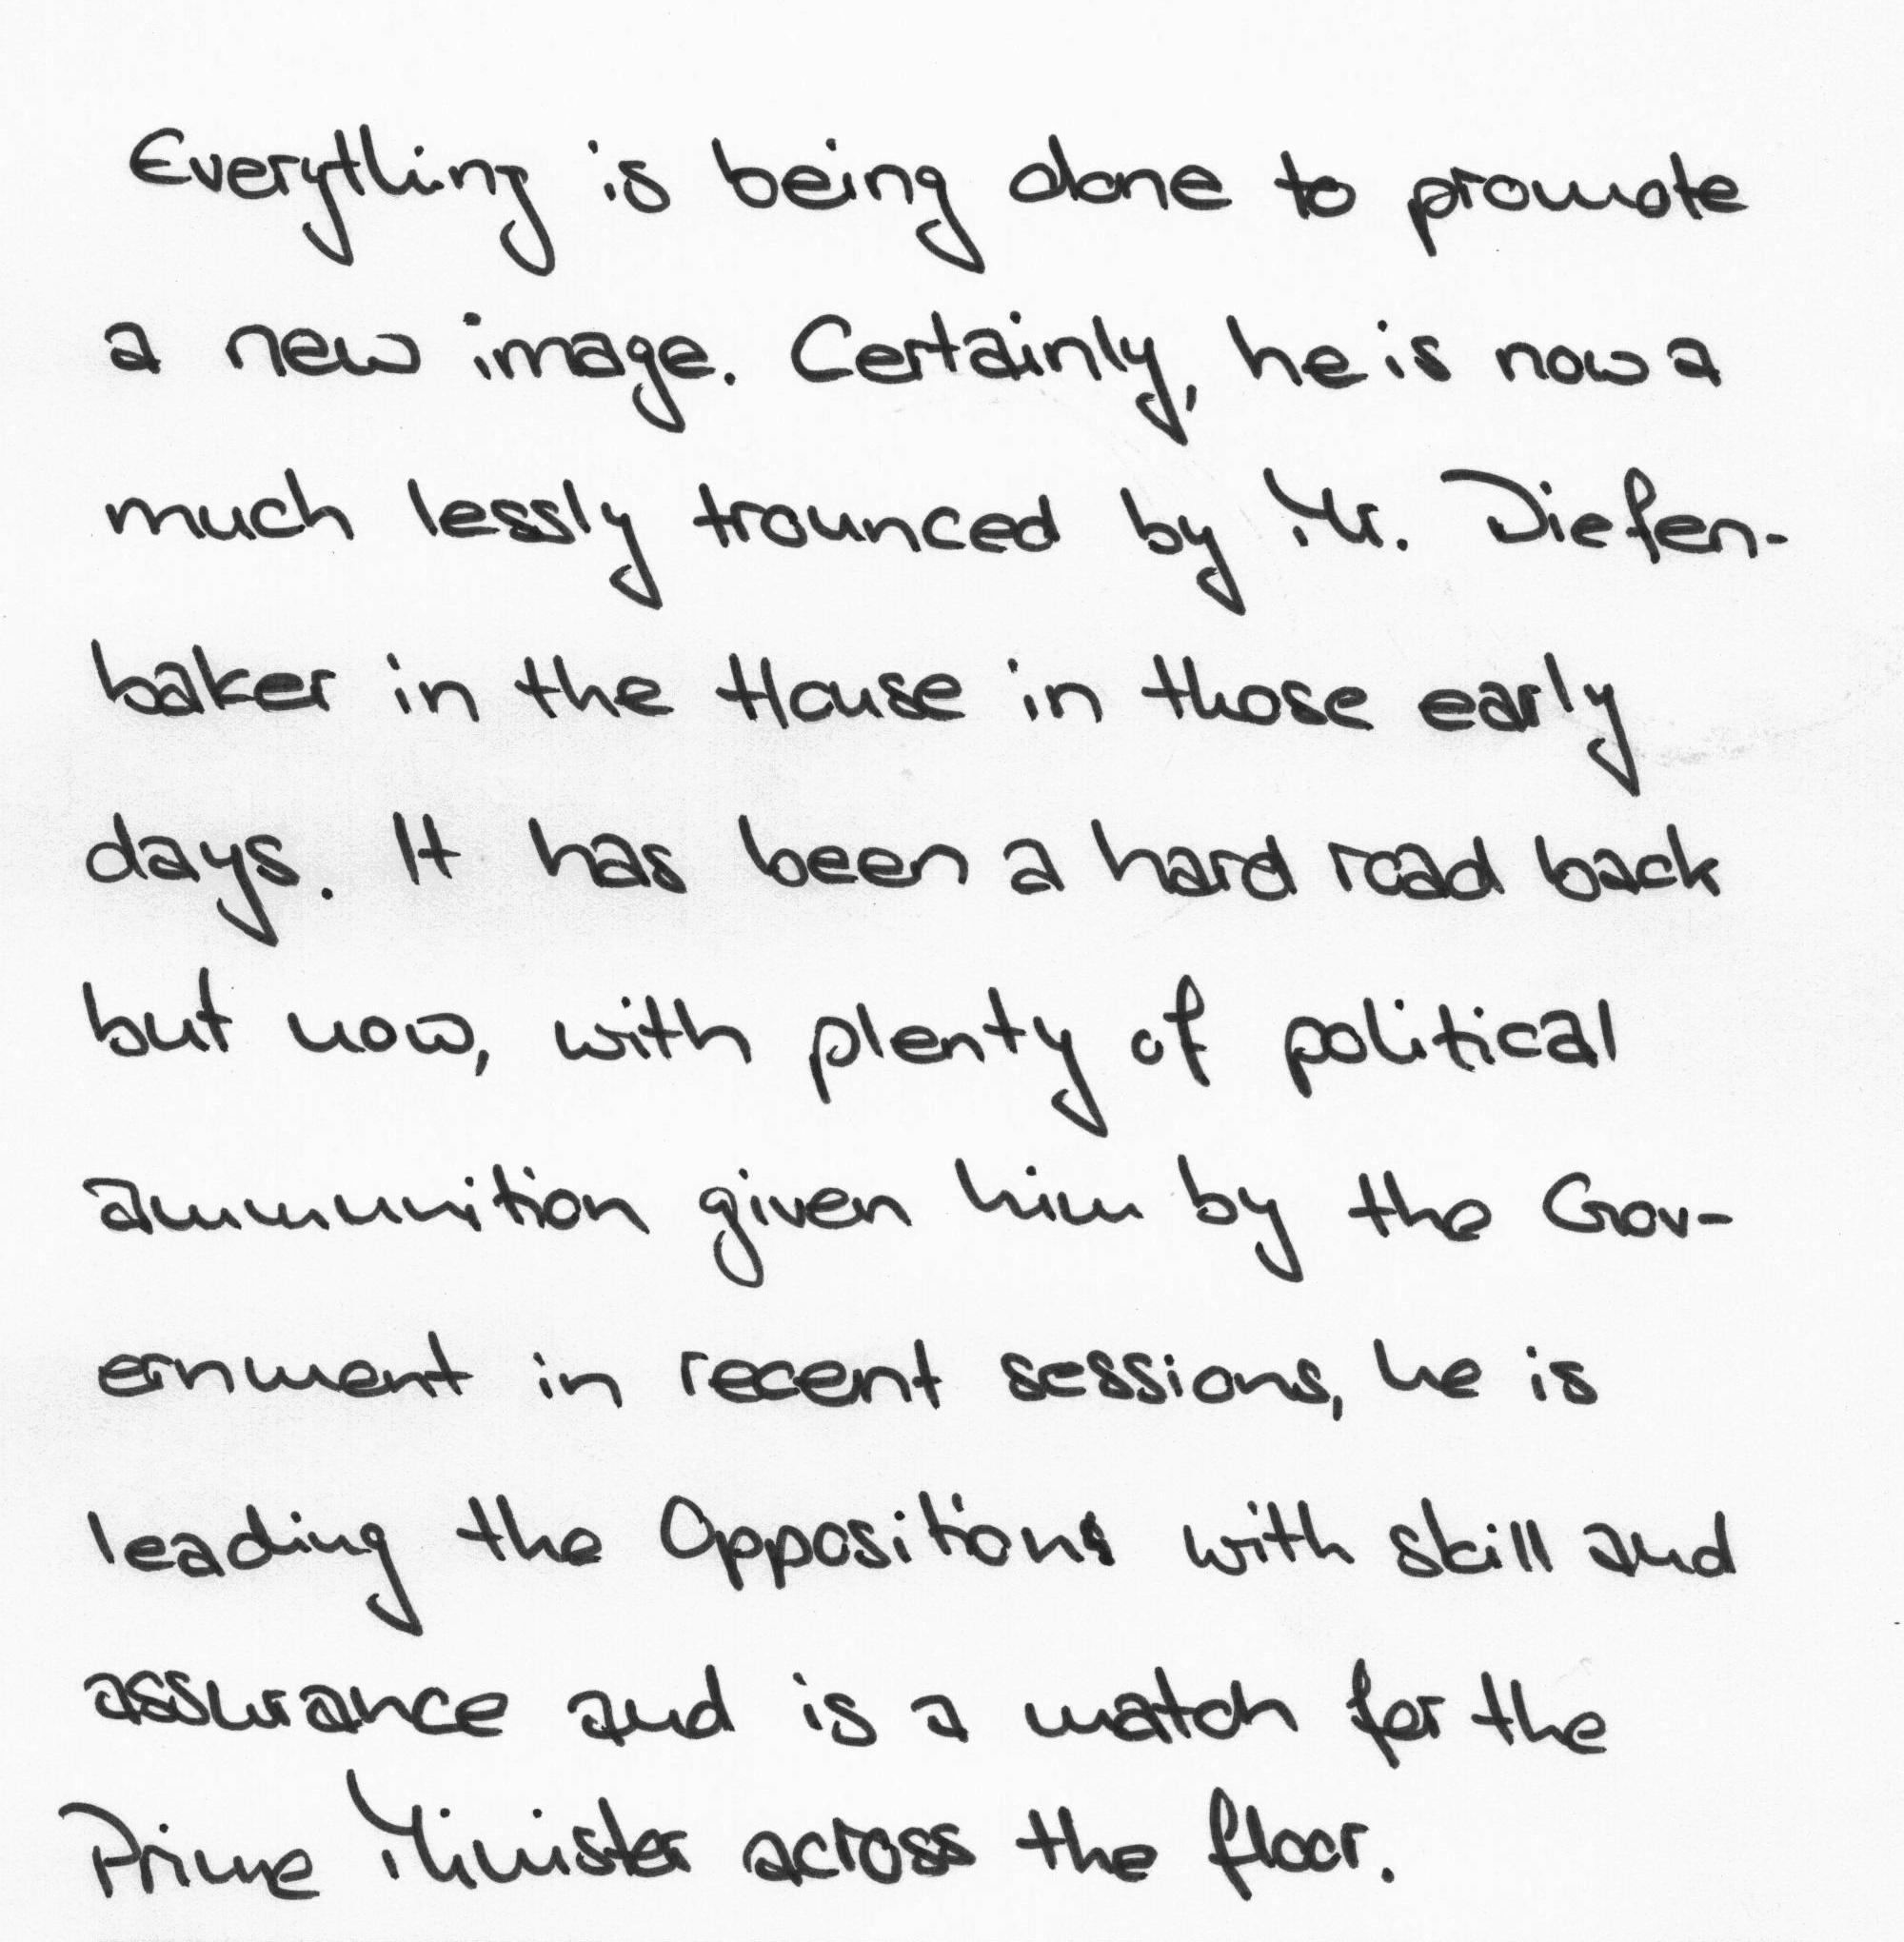 Everything is being done to promote
a new image. Certainly, he is now a
much lessly trounced by Mr. Diefen-
baker in the House in those early
days. It has been a hard road back
but now, with plenty of political
ammunition given him by the Gov-
ernment in recent sessions, he is
leading the Oppositions with skill and
assurance and is a match for the
Prime Minister across the floor.